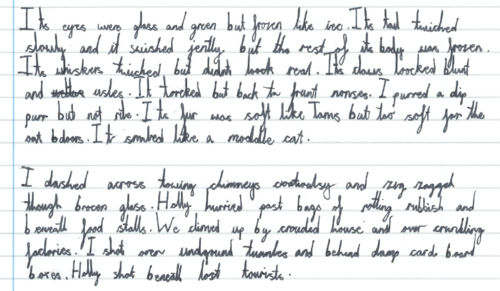 Its eyes were glass and green but frozen like ice. Its tail twiched
slowly and it swished jently but the rest of its body was frozen.
Its whiskers twiched but didnt look real. Its claws loocked blunt
and usles. It loocked but back to frunt nonses. I purred a dip
purr but not ribe. Its fur was soft like Tams but too soft for the
out bdoors. It smelred like a modale cat.
I dashed across towing chimneys continulsy and zig zagged
though brocen glass. Holly hurried past bags of rotting rubbish and
beneath food stalls. We climed up by crouded house and over crumbling
factories. I shot over undground tunnles and behind damp card board
boxes. Holly shot beneath lost tourists.